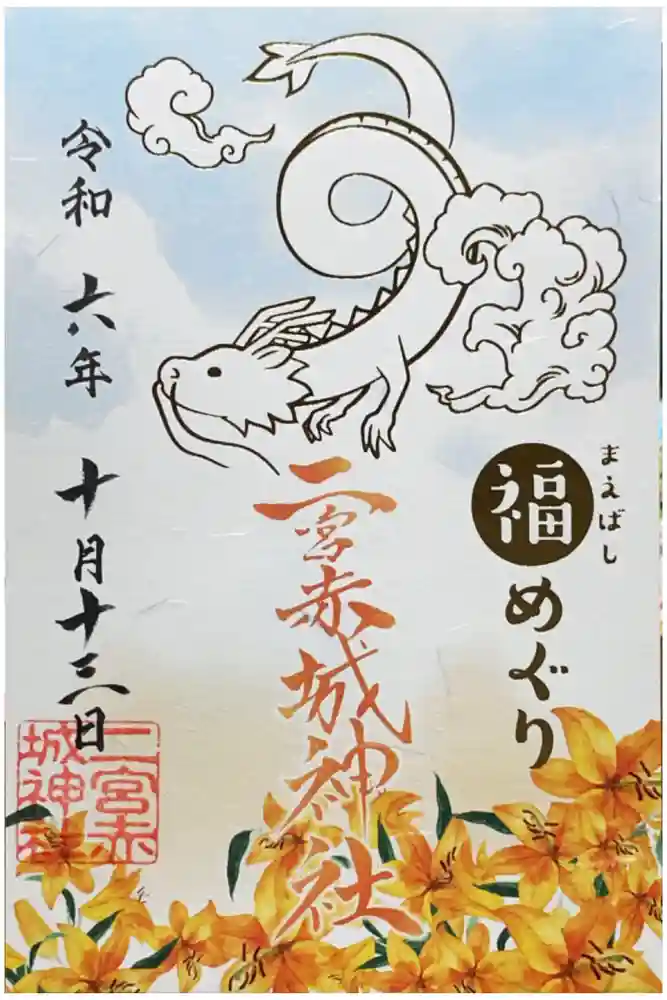 まえばし
福めぐり
二宮赤城神社
令和 六年 十月十三日
二宮赤
城神社